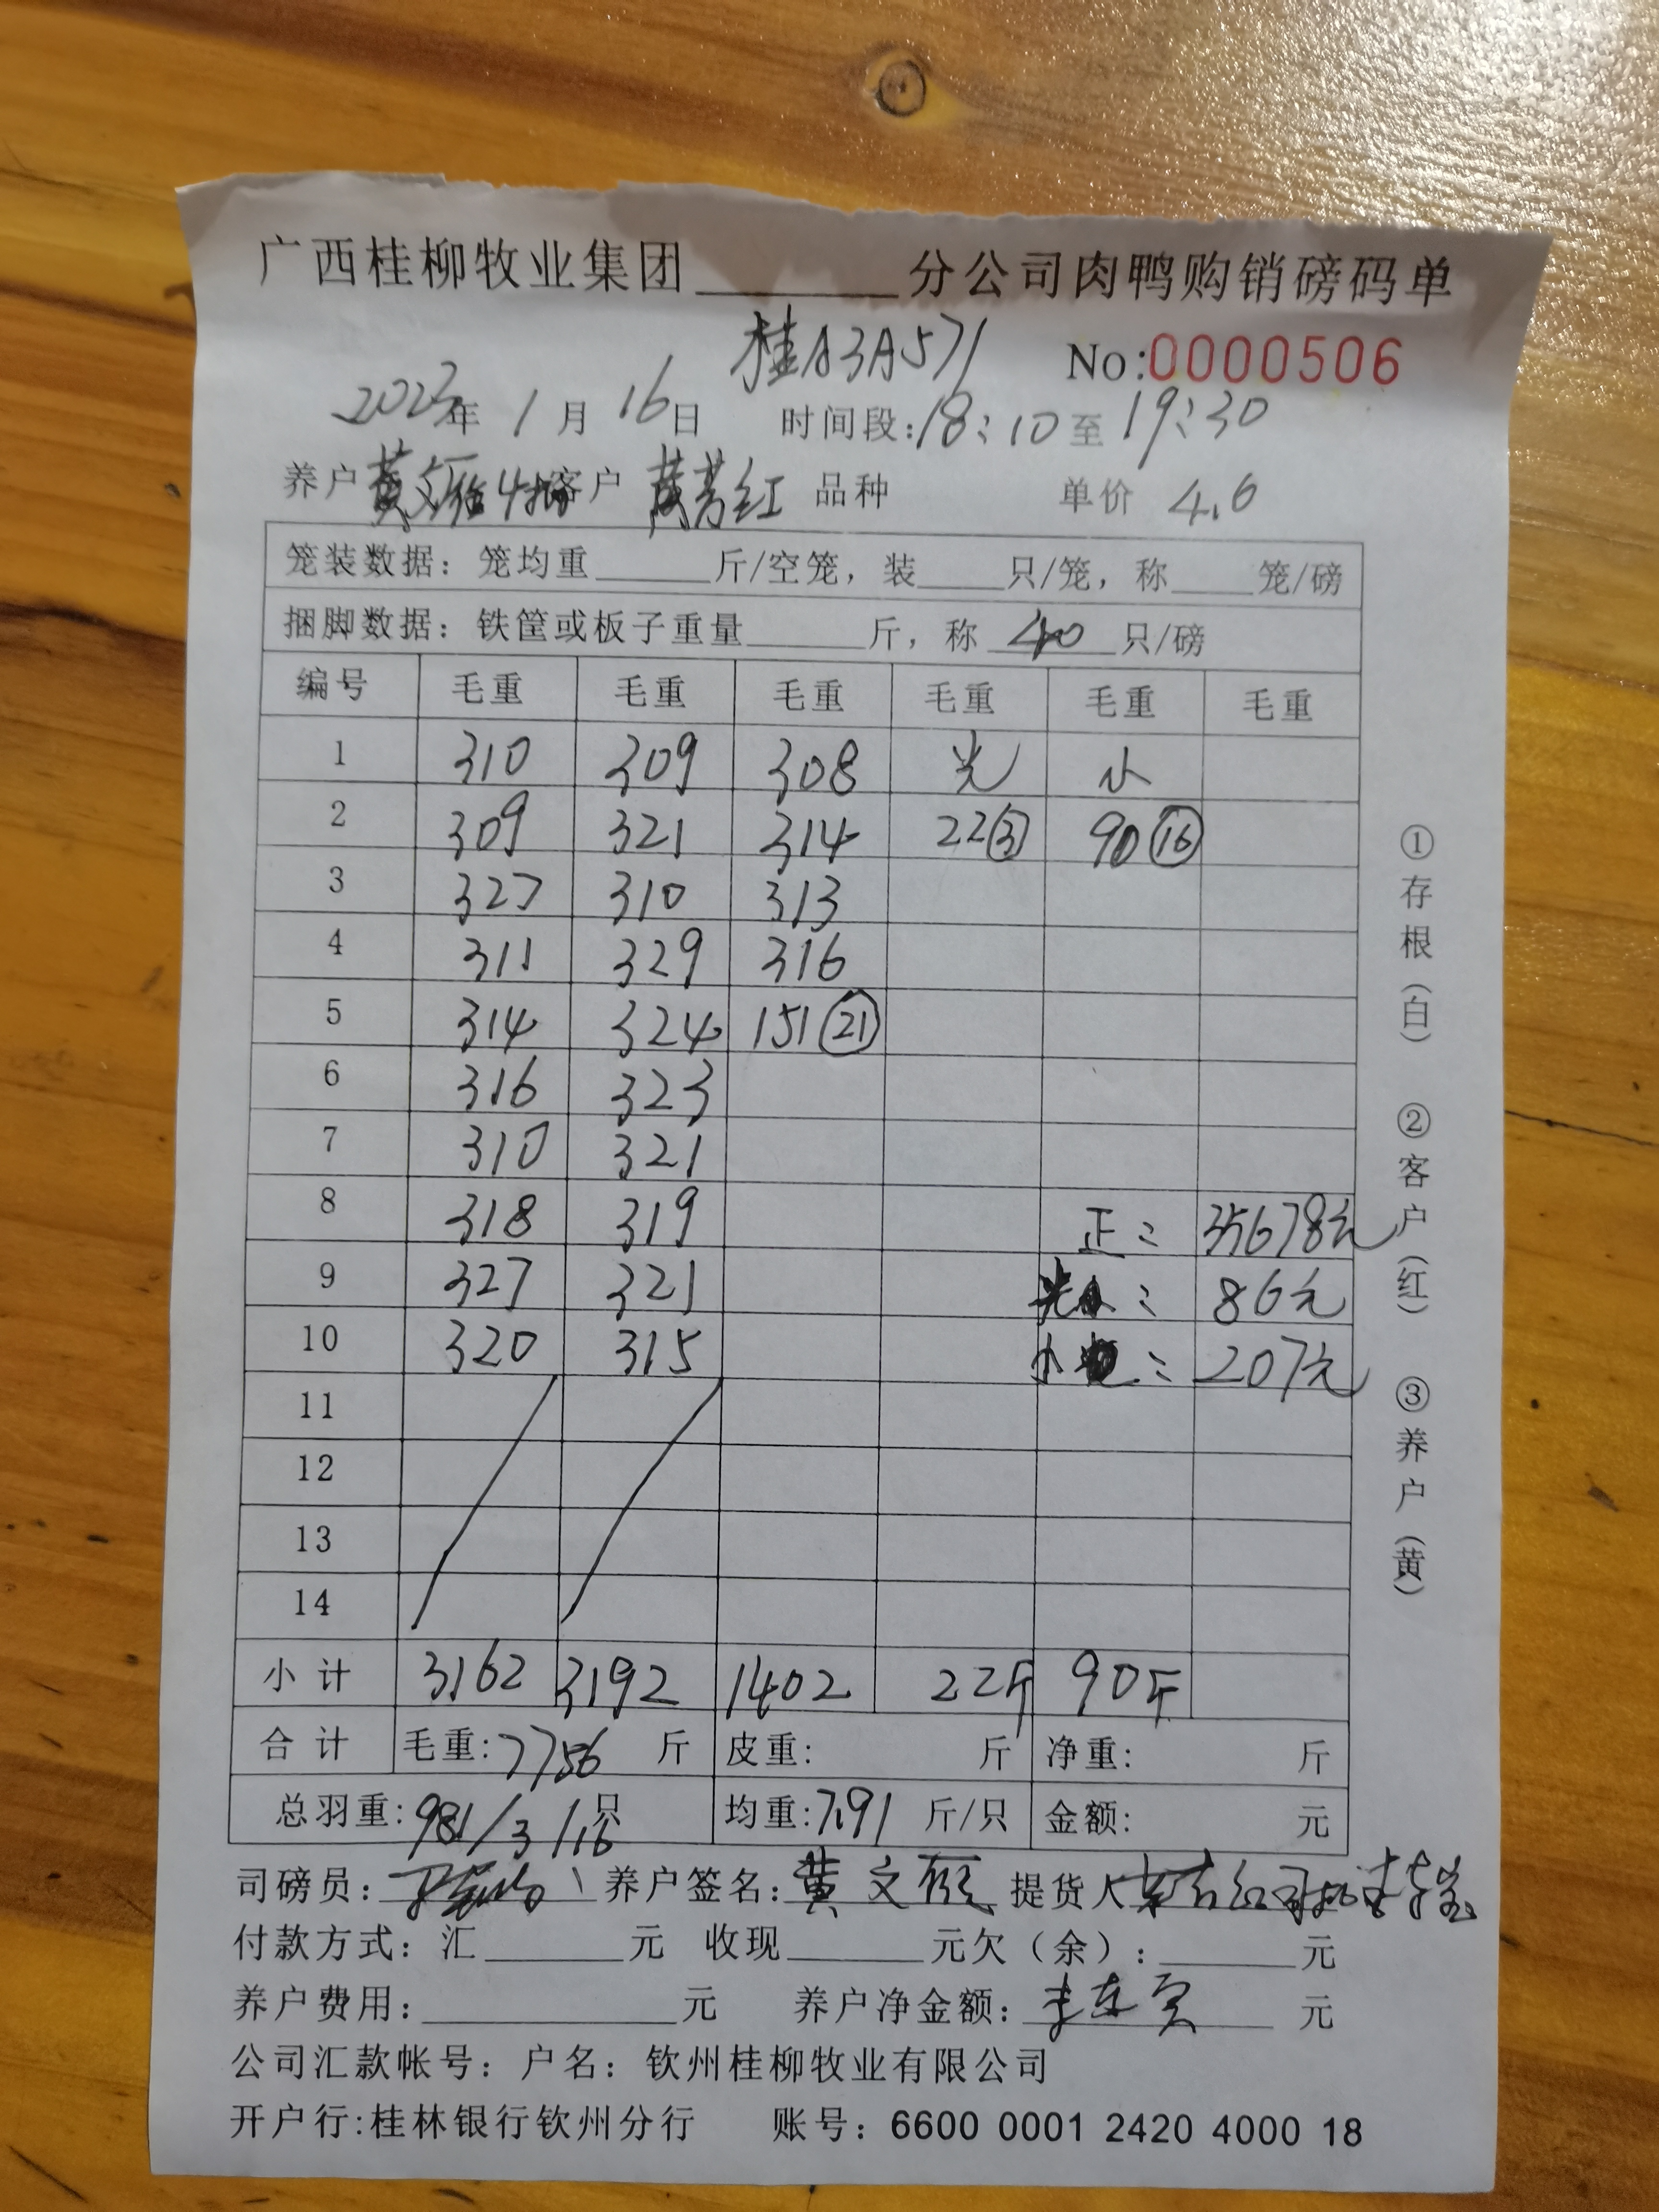 广西桂柳牧业集团________分公司肉鸭购销磅码单
桂A3A571 No:0000506
2023年 1月 16日 时间段:18:10至19:30
养户 黄文 客户 黄芳红 品种 单价 4.6
笼装数据：笼均重______斤/空笼，装____只/笼，称____笼/磅
捆脚数据：铁筐或板子重量______斤，称 40 只/磅
编号 毛重 毛重 毛重 毛重 毛重 毛重
1 310 309 308 光 小
2 309 321 314 22③ 90⑯
3 327 310 313
4 311 329 316
5 314 324 151㉑
6 316 323
7 310 321
8 318 319 正: 35678元
9 327 321 光: 86元
10 320 315 小: 207元
11
12
13
14
小计 3162 3192 1402 22斤 90斤
合计 毛重:7756 斤 皮重: 斤 净重: 斤
总羽重:981/3/16只 均重:7.91 斤/只 金额: 元
司磅员: 养户签名:黄文 提货人
付款方式：汇______元 收现______元欠（余）:______元
养户费用:____________元 养户净金额: 元
公司汇款帐号：户名：钦州桂柳牧业有限公司
开户行:桂林银行钦州分行 账号：6600 0001 2420 4000 18
①存根（白） ②客户（红） ③养户（黄）